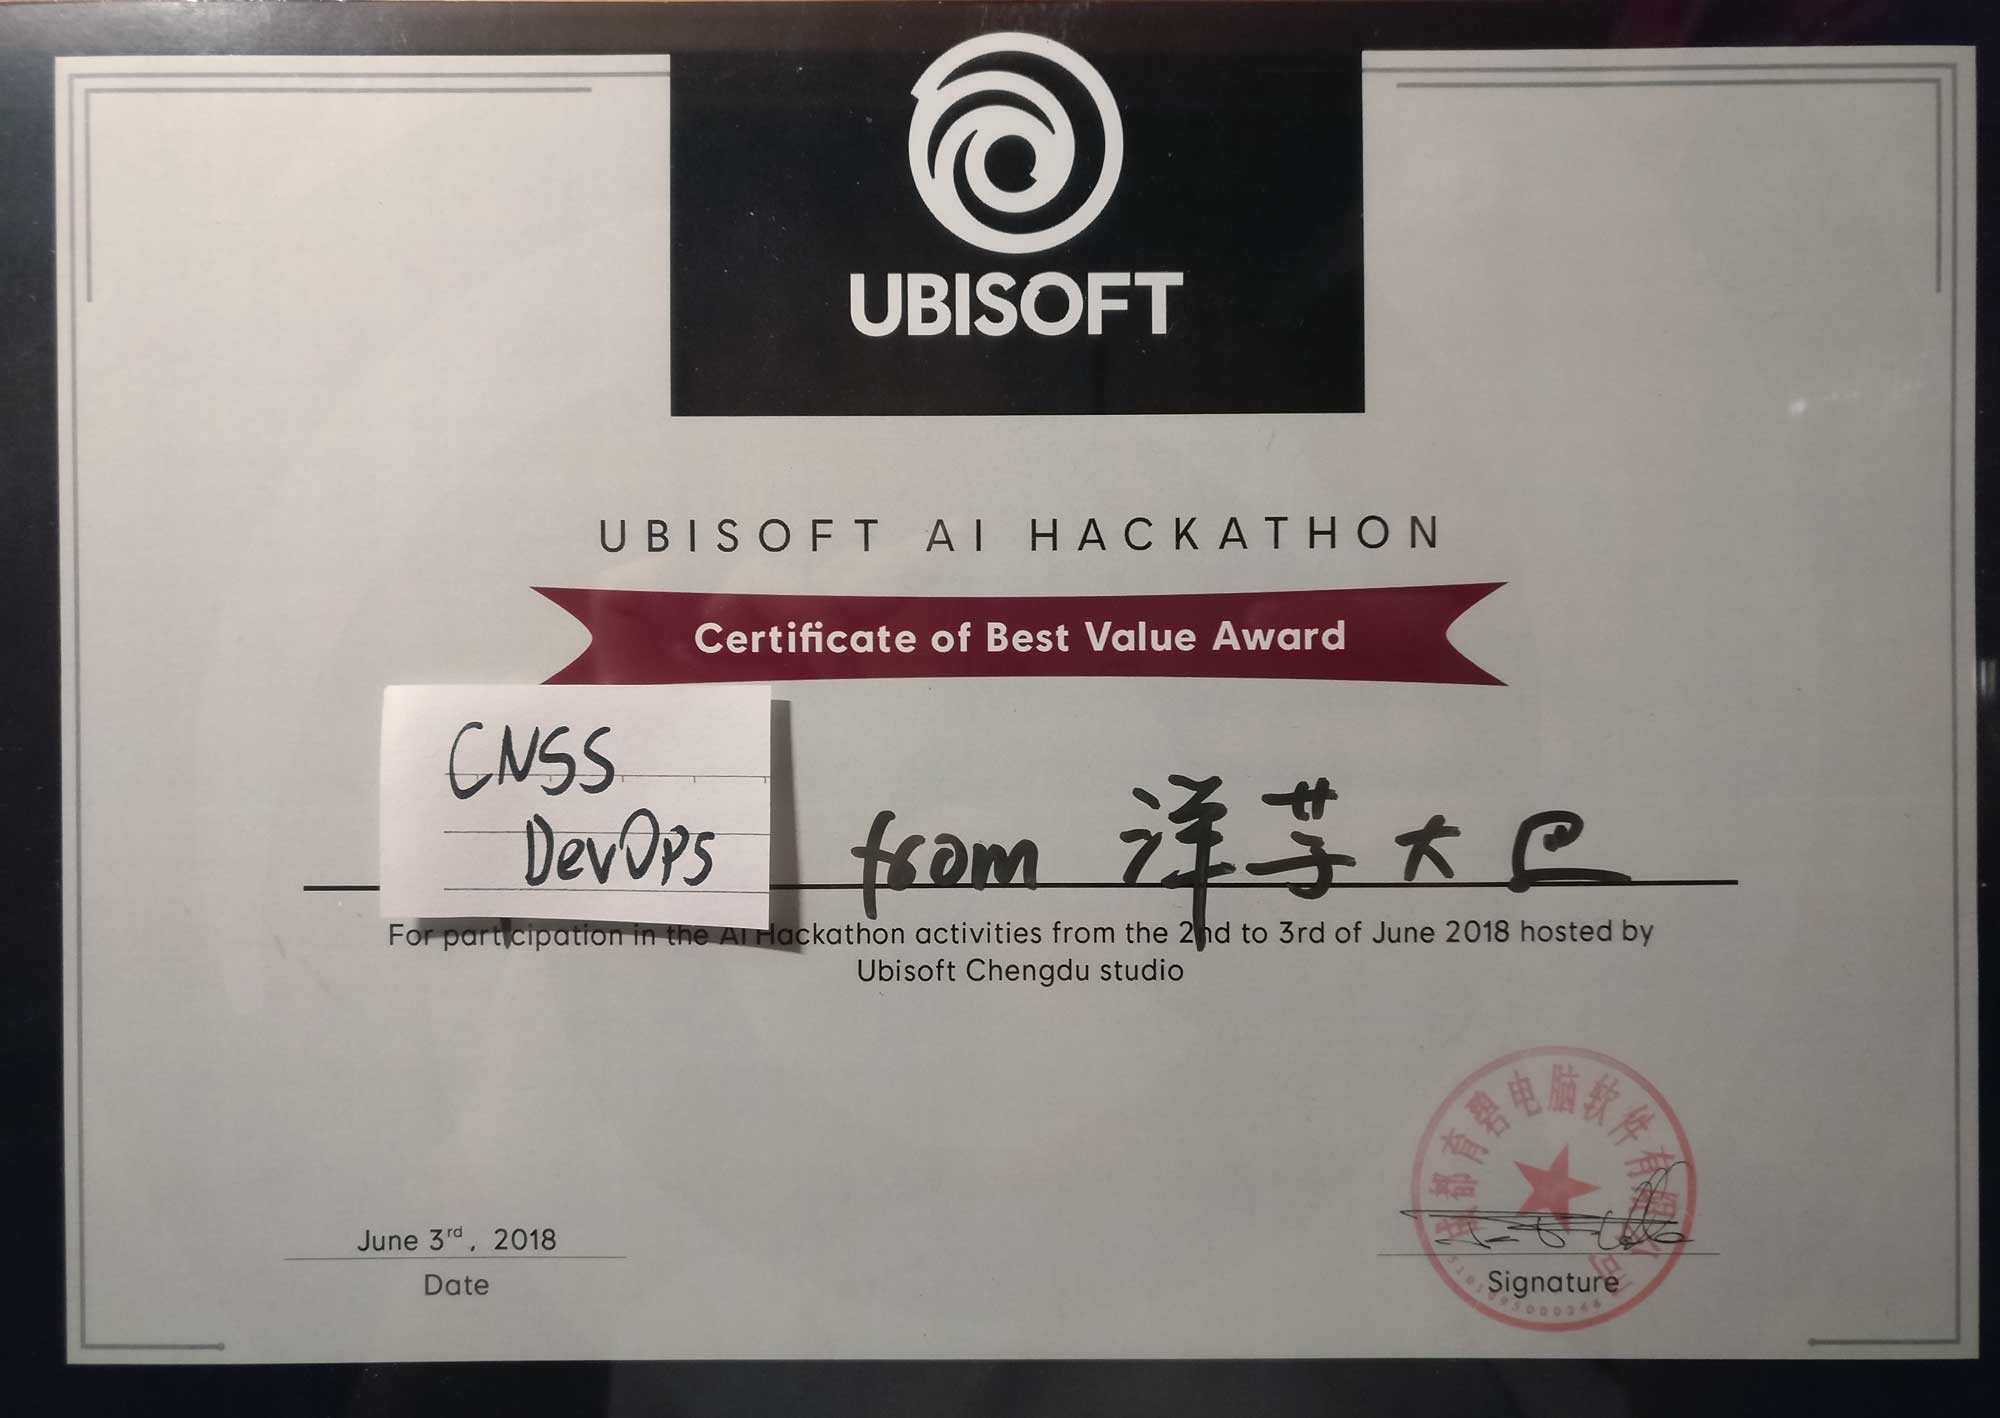 UBISOFT
UBISOFT AI HACKATHON
Certificate of Best Value Award
CNSS
DevOps
from 洋芋大巴
For participation in the AI Hackathon activities from the 2nd to 3rd of June 2018 hosted by
Ubisoft Chengdu studio
成都育碧电脑软件有限公司
June 3rd, 2018
Date
Signature